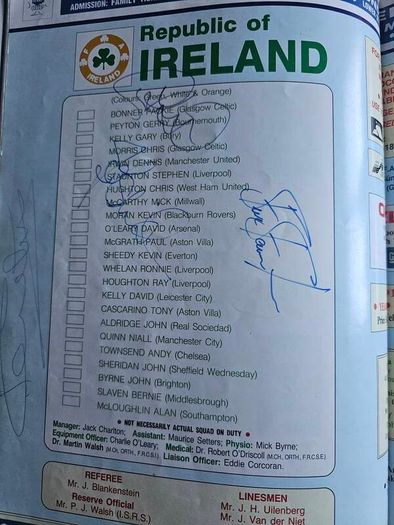 ADMISSION: FAMILY
FAI
Republic of
IRELAND
(Colours: Green, White & Orange)
BONNER PACKIE (Glasgow Celtic)
PEYTON GERRY (Bournemouth)
KELLY GARY (Bury)
MORRIS CHRIS (Glasgow Celtic)
IRWIN DENNIS (Manchester United)
STAUNTON STEPHEN (Liverpool)
HUGHTON CHRIS (West Ham United)
McCARTHY MICK (Millwall)
MORAN KEVIN (Blackburn Rovers)
O'LEARY DAVID (Arsenal)
McGRATH PAUL (Aston Villa)
SHEEDY KEVIN (Everton)
WHELAN RONNIE (Liverpool)
HOUGHTON RAY (Liverpool)
KELLY DAVID (Leicester City)
CASCARINO TONY (Aston Villa)
ALDRIDGE JOHN (Real Sociedad)
QUINN NIALL (Manchester City)
TOWNSEND ANDY (Chelsea)
SHERIDAN JOHN (Sheffield Wednesday)
BYRNE JOHN (Brighton)
SLAVEN BERNIE (Middlesbrough)
McLOUGHLIN ALAN (Southampton)
• NOT NECESSARILY ACTUAL SQUAD ON DUTY •
Manager: Jack Charlton; Assistant: Maurice Setters; Physio: Mick Byrne;
Equipment Officer: Charlie O'Leary; Medical: Dr. Robert O'Driscoll (M.CH, ORTH, F.R.C.S.E)
Dr. Martin Walsh (M.CH, ORTH., F.R.C.S.I). Liaison Officer: Eddie Corcoran.
REFEREE
Mr. J. Blankenstein
Reserve Official
Mr. P. J. Walsh (I.S.R.S.)
LINESMEN
Mr. J. H. Uilenberg
Mr. J. Van der Niet